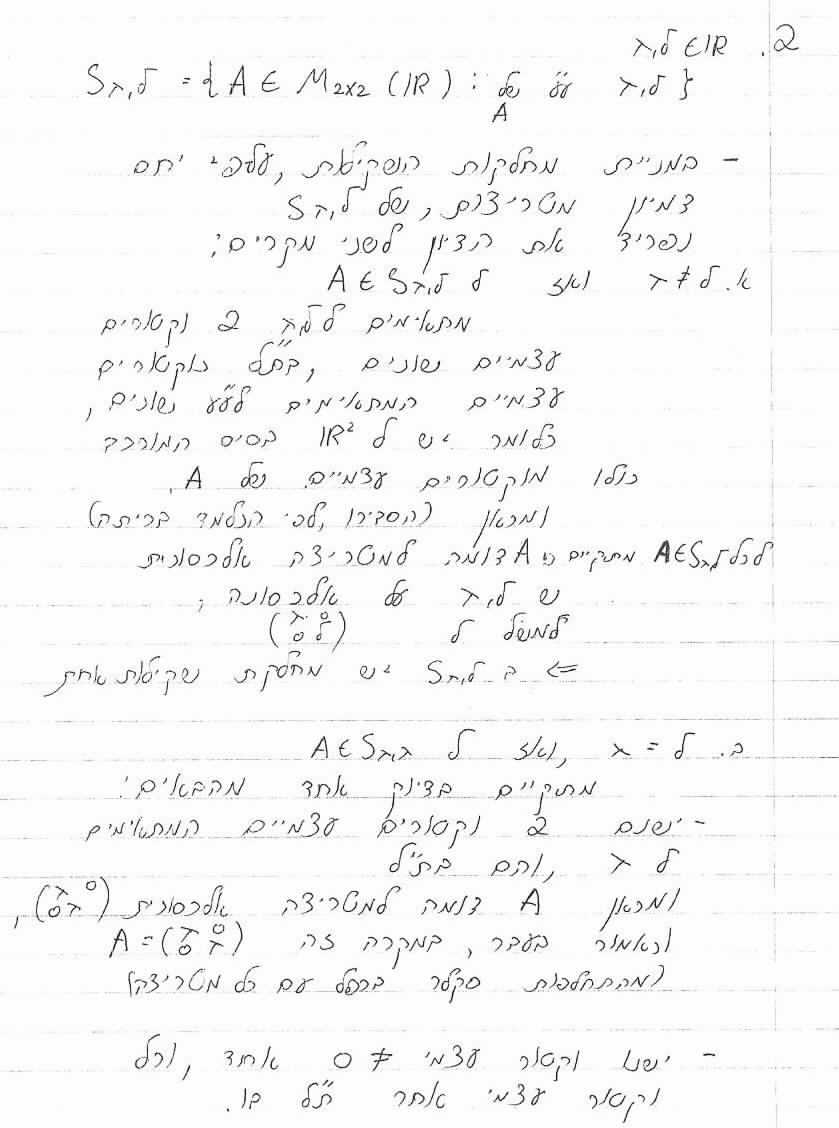 2. ל,λ ∈ ℝ
S_{ל,λ} = { A ∈ M_{2x2} (ℝ) : ל,λ ע״ע של A }
- במניית מחלקות השקילות, על פי יחס
דמיון מטריצות, של S_{ל,λ}
נפריד את הדיון לשני מקרים:
א. ל ≠ λ ואז ל A ∈ S_{ל,λ}
מתאימים 2 וקטורים
עצמיים שונים, בת״ל כוקטורים
עצמיים המתאימים לע״ע שונים,
כלומר יש ל ℝ² בסיס המורכב
כולו מוקטורים עצמיים של A.
ומכאן (הסבירו, לפי הנלמד בכיתה)
לכל A ∈ S_{ל,λ} מתקיים כי A דומה למטריצה אלכסונית
ש ל,λ על אלכסונה,
למשל ל (λ 0 / 0 ל)
⇐ ב S_{ל,λ} יש מחלקת שקילות אחת
ב. ל = λ, ואז ל A ∈ S_{λ,λ}
מתקיים בדיוק אחד מהבאים:
- ישנם 2 וקטורים עצמיים המתאימים
ל λ, והם בת״ל
ומכאן A דומה למטריצה אלכסונית (λ 0 / 0 λ),
וכאמור בעבר, במקרה זה A = (λ 0 / 0 λ)
(מהתחלפות סקלר בכפל עם כל מטריצה)
- ישנו וקטור עצמי ≠ 0 אחד, וכל
וקטור עצמי אחר ת״ל בו.